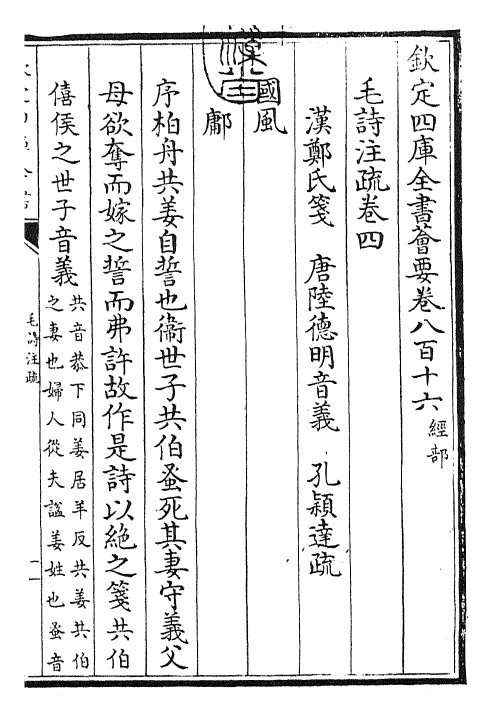 欽定四庫全書薈要卷八百十六 經部
毛詩注疏卷四
漢鄭氏箋 唐陸德明音義 孔穎達疏
國風
鄘
序柏舟共姜自誓也衞世子共伯蚤死其妻守義父
母欲奪而嫁之誓而弗許故作是詩以絶之箋共伯
僖侯之世子音義共音恭下同姜居羊反共姜共伯
之妻也婦人從夫諡姜姓也蚤音
毛詩注疏